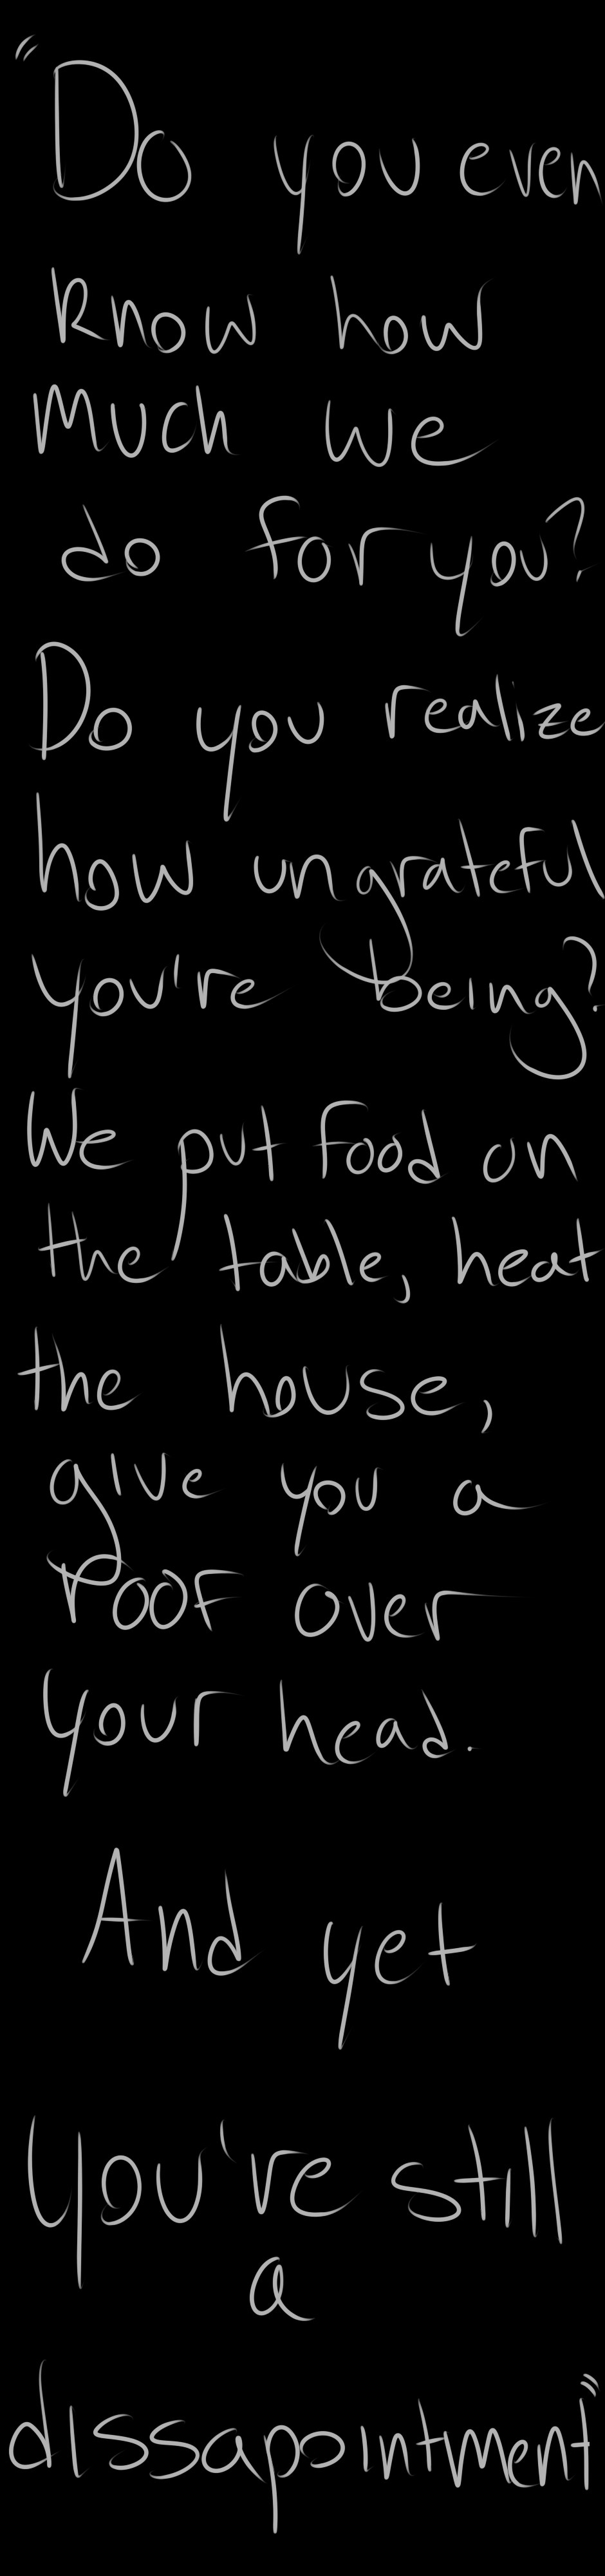 "Do you even
know how
much we
do for you?
Do you realize
how ungrateful
you're being?
We put food on
the table, heat
the house,
give you a
roof over
your head.
And yet
you're still
a
dissapointment"